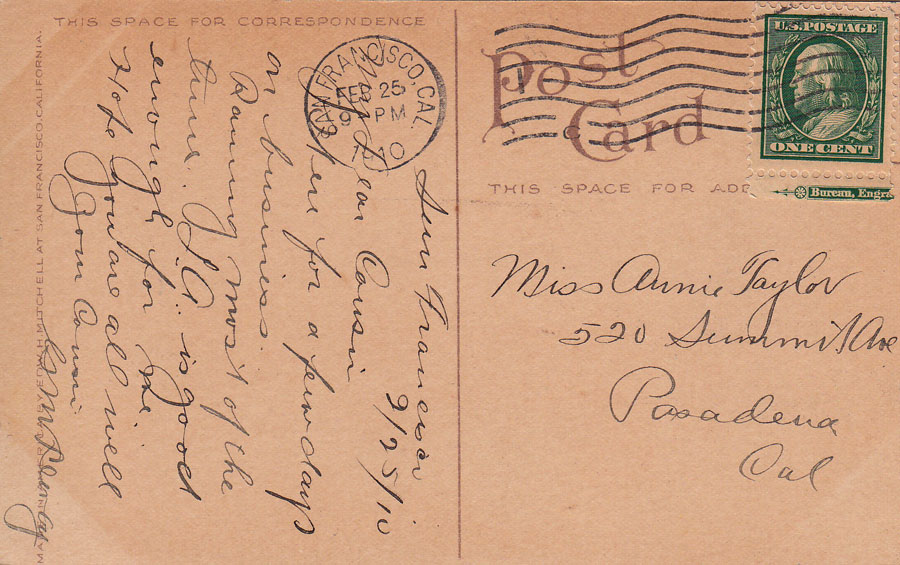 THIS SPACE FOR CORRESPONDENCE
San Francisco
2/25/10
My Dear Cousin
Here for a few days
on business.
Raining most of the
time. L.A. is good
enough for me
Hope you are all well
Your Cousin
SAN FRANCISCO, CAL.
FEB 25
PM
1910
Post Card
U.S. POSTAGE
ONE CENT
Bureau, Engra
THIS SPACE FOR ADD
Miss Annie Taylor
520 Summit Ave
Pasadena
Cal
MITCHELL AT SAN FRANCISCO, CALIFORNIA.